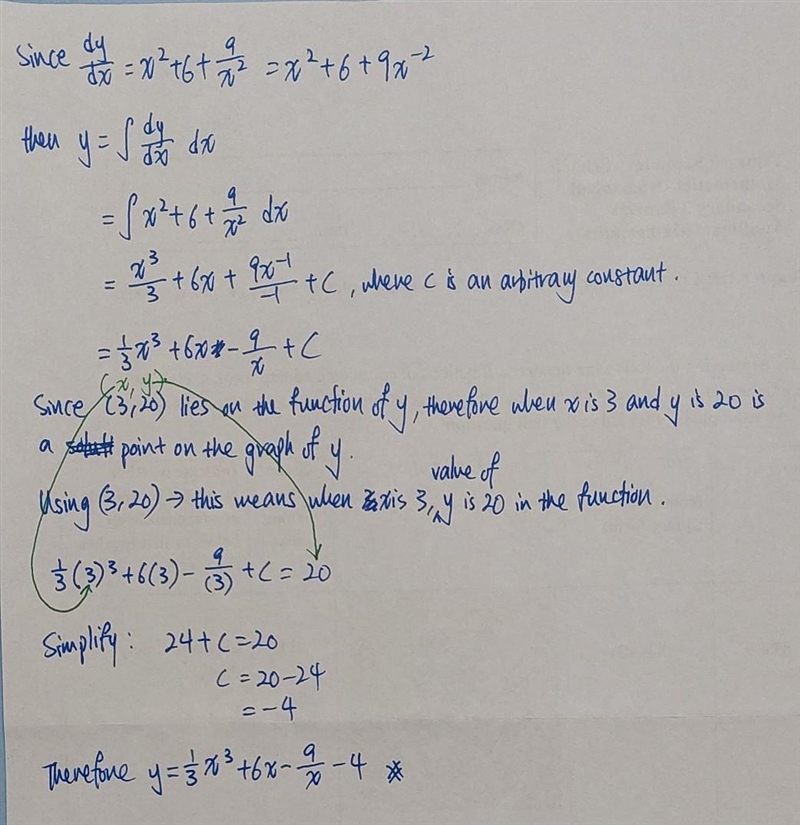 Since dy/dx = x² + 6 + 9/x² = x² + 6 + 9x⁻²
then y = ∫ dy/dx dx
= ∫ x² + 6 + 9/x² dx
= x³/3 + 6x + 9x⁻¹/-1 + C, where c is an arbitrary constant.
= 1/3 x³ + 6x - 9/x + C
(x, y)
Since (3,20) lies on the function of y, therefore when x is 3 and y is 20 is
a point on the graph of y.
value of
Using (3,20) → this means when x is 3, y is 20 in the function.
1/3 (3)³ + 6(3) - 9/(3) + C = 20
Simplify: 24 + C = 20
C = 20 - 24
= -4
Therefore y = 1/3 x³ + 6x - 9/x - 4